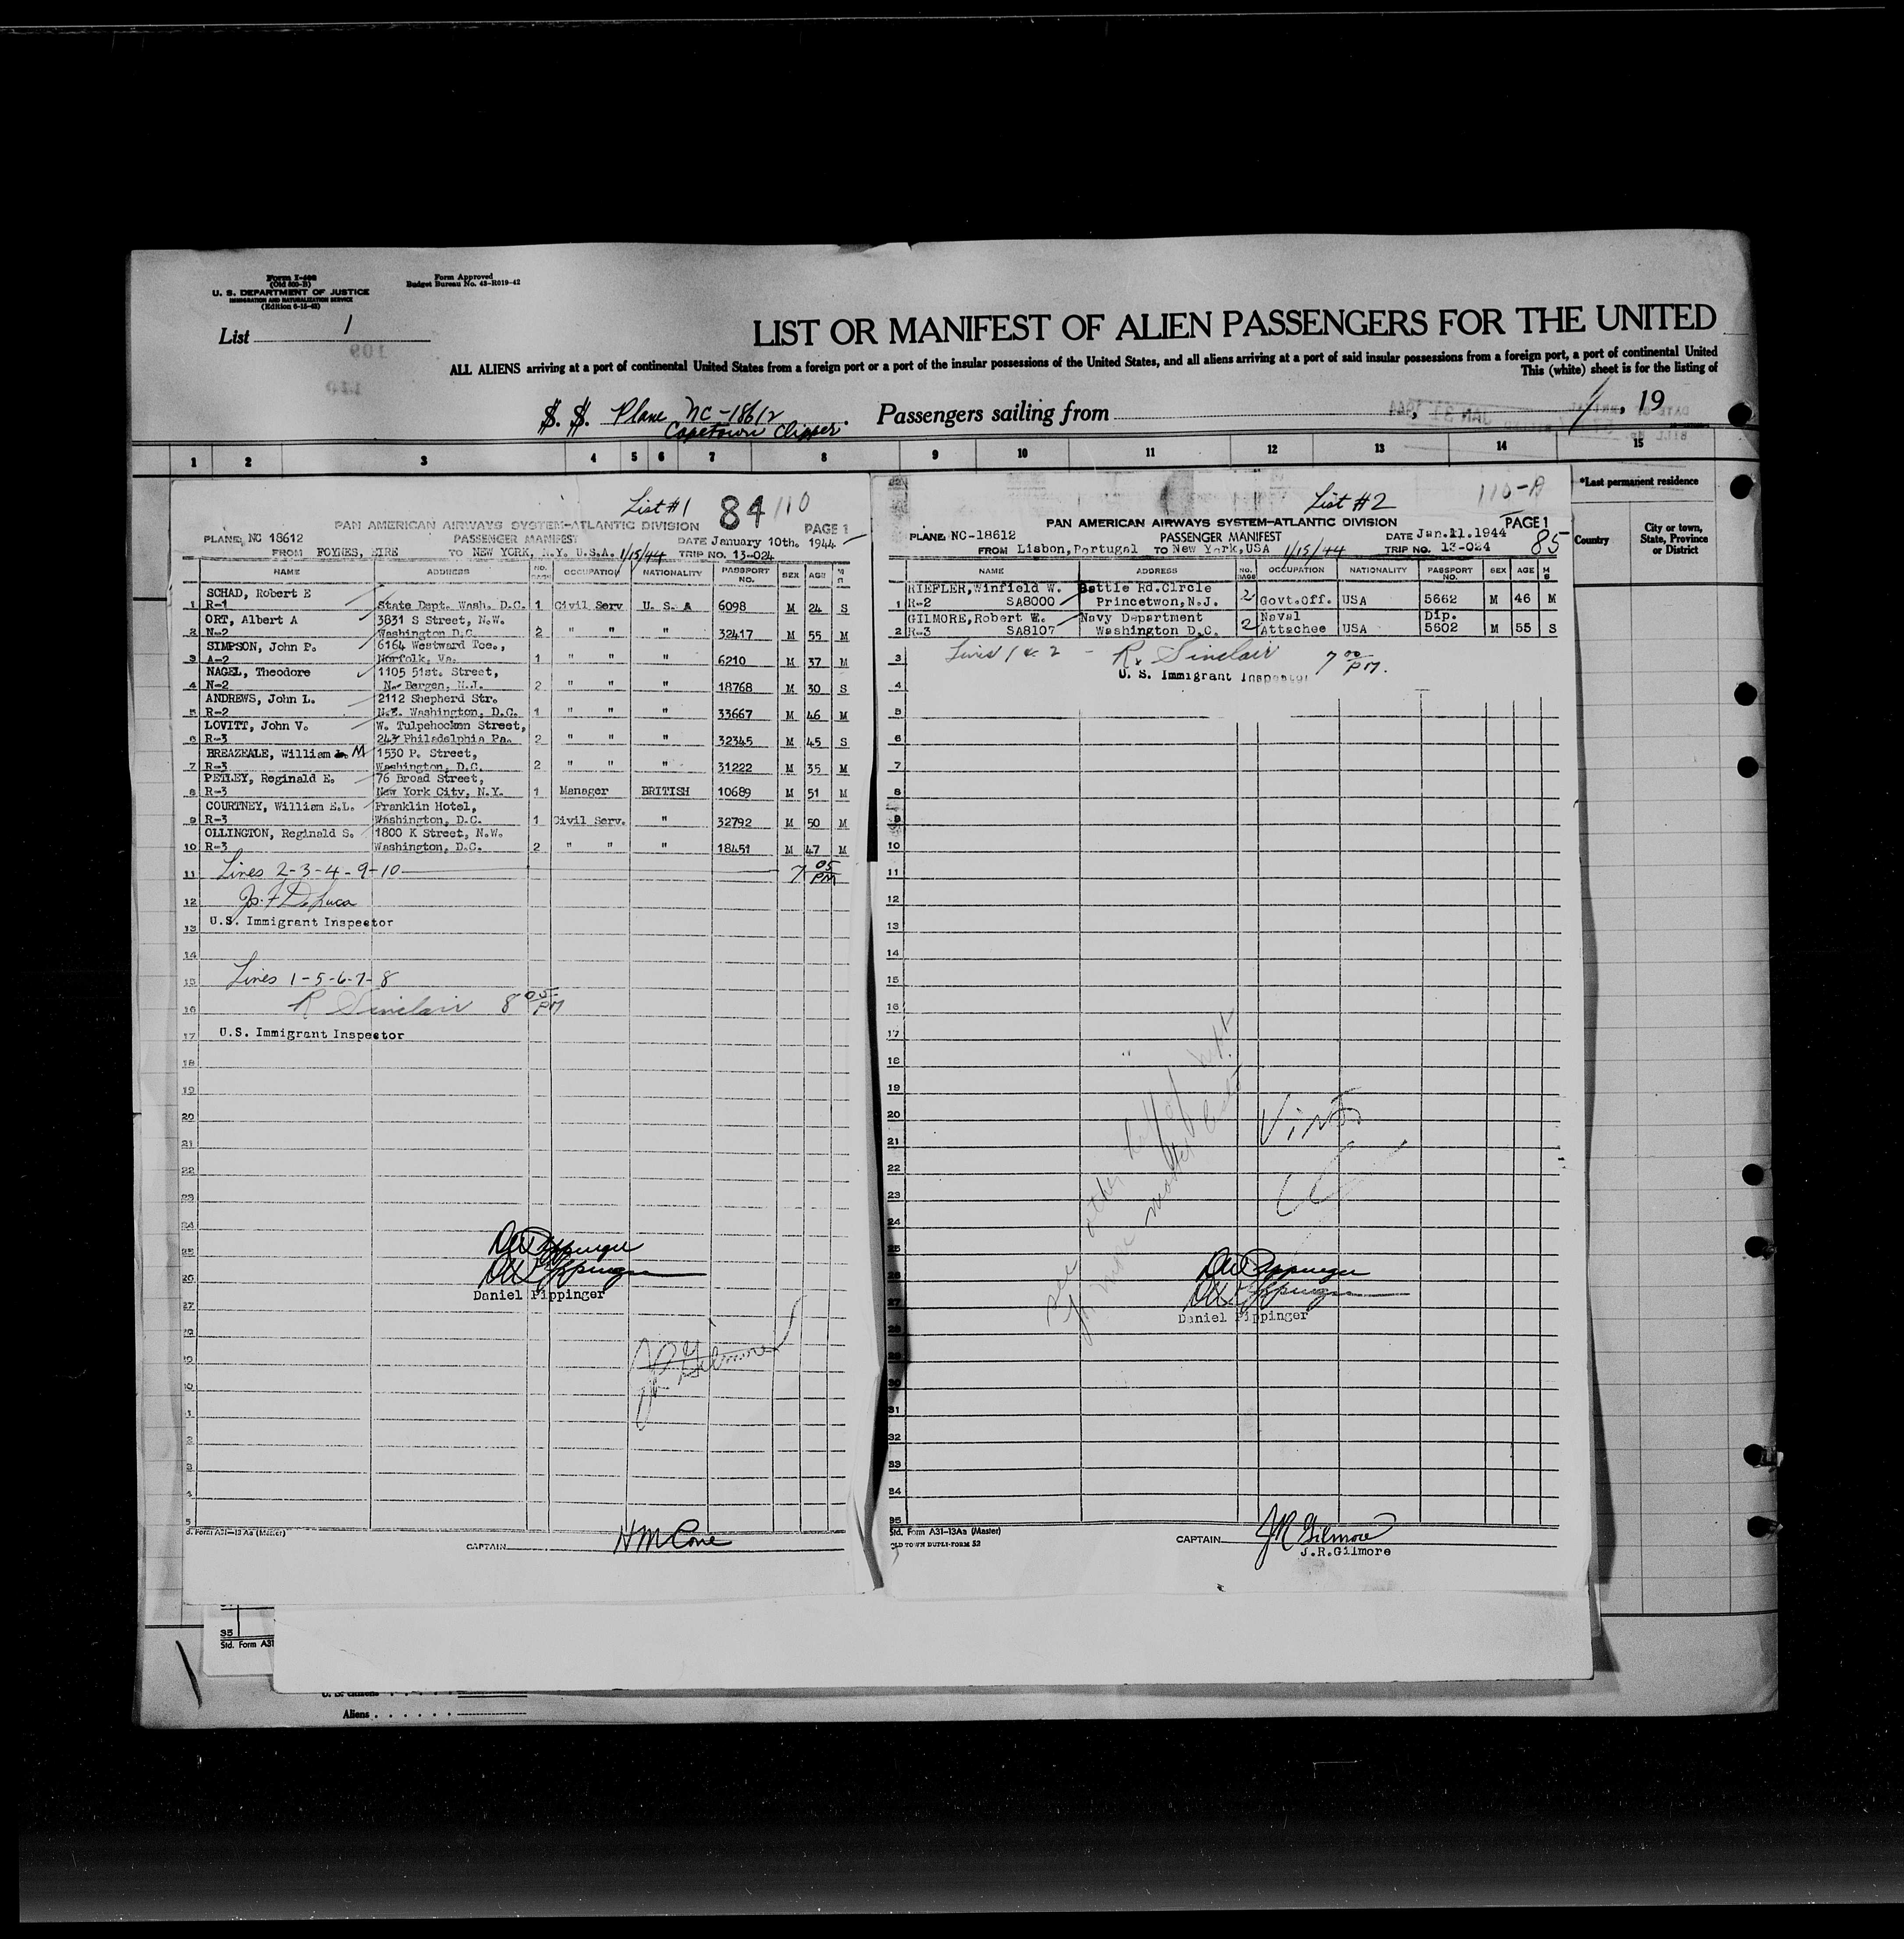 Form I-466
(Old 500-B)
U. S. DEPARTMENT OF JUSTICE
IMMIGRATION AND NATURALIZATION SERVICE
(Edition 6-15-42)
Form Approved
Budget Bureau No. 43-R019-42
List 1
LIST OR MANIFEST OF ALIEN PASSENGERS FOR THE UNITED
ALL ALIENS arriving at a port of continental United States from a foreign port or a port of the insular possessions of the United States, and all aliens arriving at a port of said insular possessions from a foreign port, a port of continental United
This (white) sheet is for the listing of
S. S. Plane NC-18612
Capetown Clipper. Passengers sailing from , 19
1 2 3 4 5 6 7 8 9 10 11 12 13 14 15
*Last permanent residence
Country
City or town,
State, Province
or District
List #1 84 110
PAN AMERICAN AIRWAYS SYSTEM-ATLANTIC DIVISION PAGE 1
PLANE, NC 18612 PASSENGER MANIFEST DATE January 10th. 1944
FROM FOYNES, EIRE TO NEW YORK, N.Y. U.S.A. 1/15/44 TRIP NO. 13-024
NAME ADDRESS NO. BAGS OCCUPATION NATIONALITY PASSPORT NO. SEX AGE M S
SCHAD, Robert E
1 R-1 State Dept. Wash. D.C. 1 Civil Serv U. S. A 6098 M 24 S
ORT, Albert A 3831 S Street, N.W.
2 N-2 Washington D.C. 2 " " " 32417 M 55 M
SIMPSON, John P. 6164 Westward Toe.,
3 A-2 Norfolk, Va. 1 " " " 6210 M 37 M
NAGEL, Theodore 1105 51st. Street,
4 N-2 N. Bergen, N.J. 2 " " " 18768 M 30 S
ANDREWS, John L. 2112 Shepherd Str.
5 R-2 N.E. Washington, D.C. 1 " " " 33667 M 46 M
LOVITT, John V. W. Tulpehocken Street,
6 R-3 243 Philadelphia Pa. 2 " " " 32345 M 45 S
BREAZEALE, William M 1530 P. Street,
7 R-3 Washington, D.C. 2 " " " 31222 M 35 M
PETLEY, Reginald E. 76 Broad Street,
8 R-3 New York City, N.Y. 1 Manager BRITISH 10689 M 51 M
COURTNEY, William E.L. Franklin Hotel,
9 R-3 Washington, D.C. 1 Civil Serv. " 32792 M 50 M
OLLINGTON, Reginald S. 1800 K Street, N.W.
10 R-3 Washington, D.C. 2 " " " 18451 M 47 M
11 Lines 2-3-4-9-10 7 05 PM
12 Jo. F DeLuca
13 U.S. Immigrant Inspector
14
15 Lines 1-5-6-7-8
16 R Sinclair 8 05 PM
17 U.S. Immigrant Inspector
18
19
20
21
22
23
24
25
26
Daniel Pippinger
27
JR Gilmore
d. Form A31-13 Aa (Master)
CAPTAIN H M Cone
List #2 110-A
PAN AMERICAN AIRWAYS SYSTEM-ATLANTIC DIVISION PAGE 1
PLANE NC-18612 PASSENGER MANIFEST DATE Jan.11.1944 85
FROM Lisbon, Portugal TO New York, USA 1/15/44 TRIP NO. 13-024
NAME ADDRESS NO. BAGS OCCUPATION NATIONALITY PASSPORT NO. SEX AGE M S
RIEFLER, Winfield W. Battle Rd.Circle
1 R-2 SA8000 Princetwon, N.J. 2 Govt.Off. USA 5662 M 46 M
GILMORE, Robert W. Navy Department Naval Dip.
2 R-3 SA8107 Washington D.C. 2 Attachee USA 5602 M 55 S
3 Lines 1 & 2 - R. Sinclair 7 00 PM.
U. S. Immigrant Inspector
4
5
6
7
8
9
10
11
12
13
14
15
16
17
18
19
20
21
22
23
24
25
26
27
Daniel Pippinger
28
29
30
31
32
33
34
35
Std. Form A31-13Aa (Master)
OLD TOWN DUPLI-FORM 52
CAPTAIN JR Gilmore
J.R.Gilmore
35
Std. Form A31
U. S. citizens
Aliens